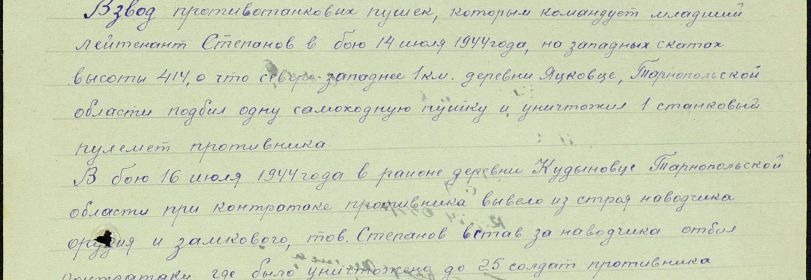 Взвод противотанковых пушек, которым командует младший
лейтенант Степанов в бою 14 июля 1944 года, на западных скатах
высоты 414, о что северо-западнее 1 км. деревни Яцковце, Тарнопольской
области подбил одну самоходную пушку и уничтожил 1 станковый
пулемет противника.
В бою 16 июля 1944 года в районе деревни Кудыновце Тарнопольской
области при контратаке противника вывело из строя наводчика
орудия и замкового, тов. Степанов встав за наводчика отбил
контратаки, где было уничтожено до 25 солдат противника